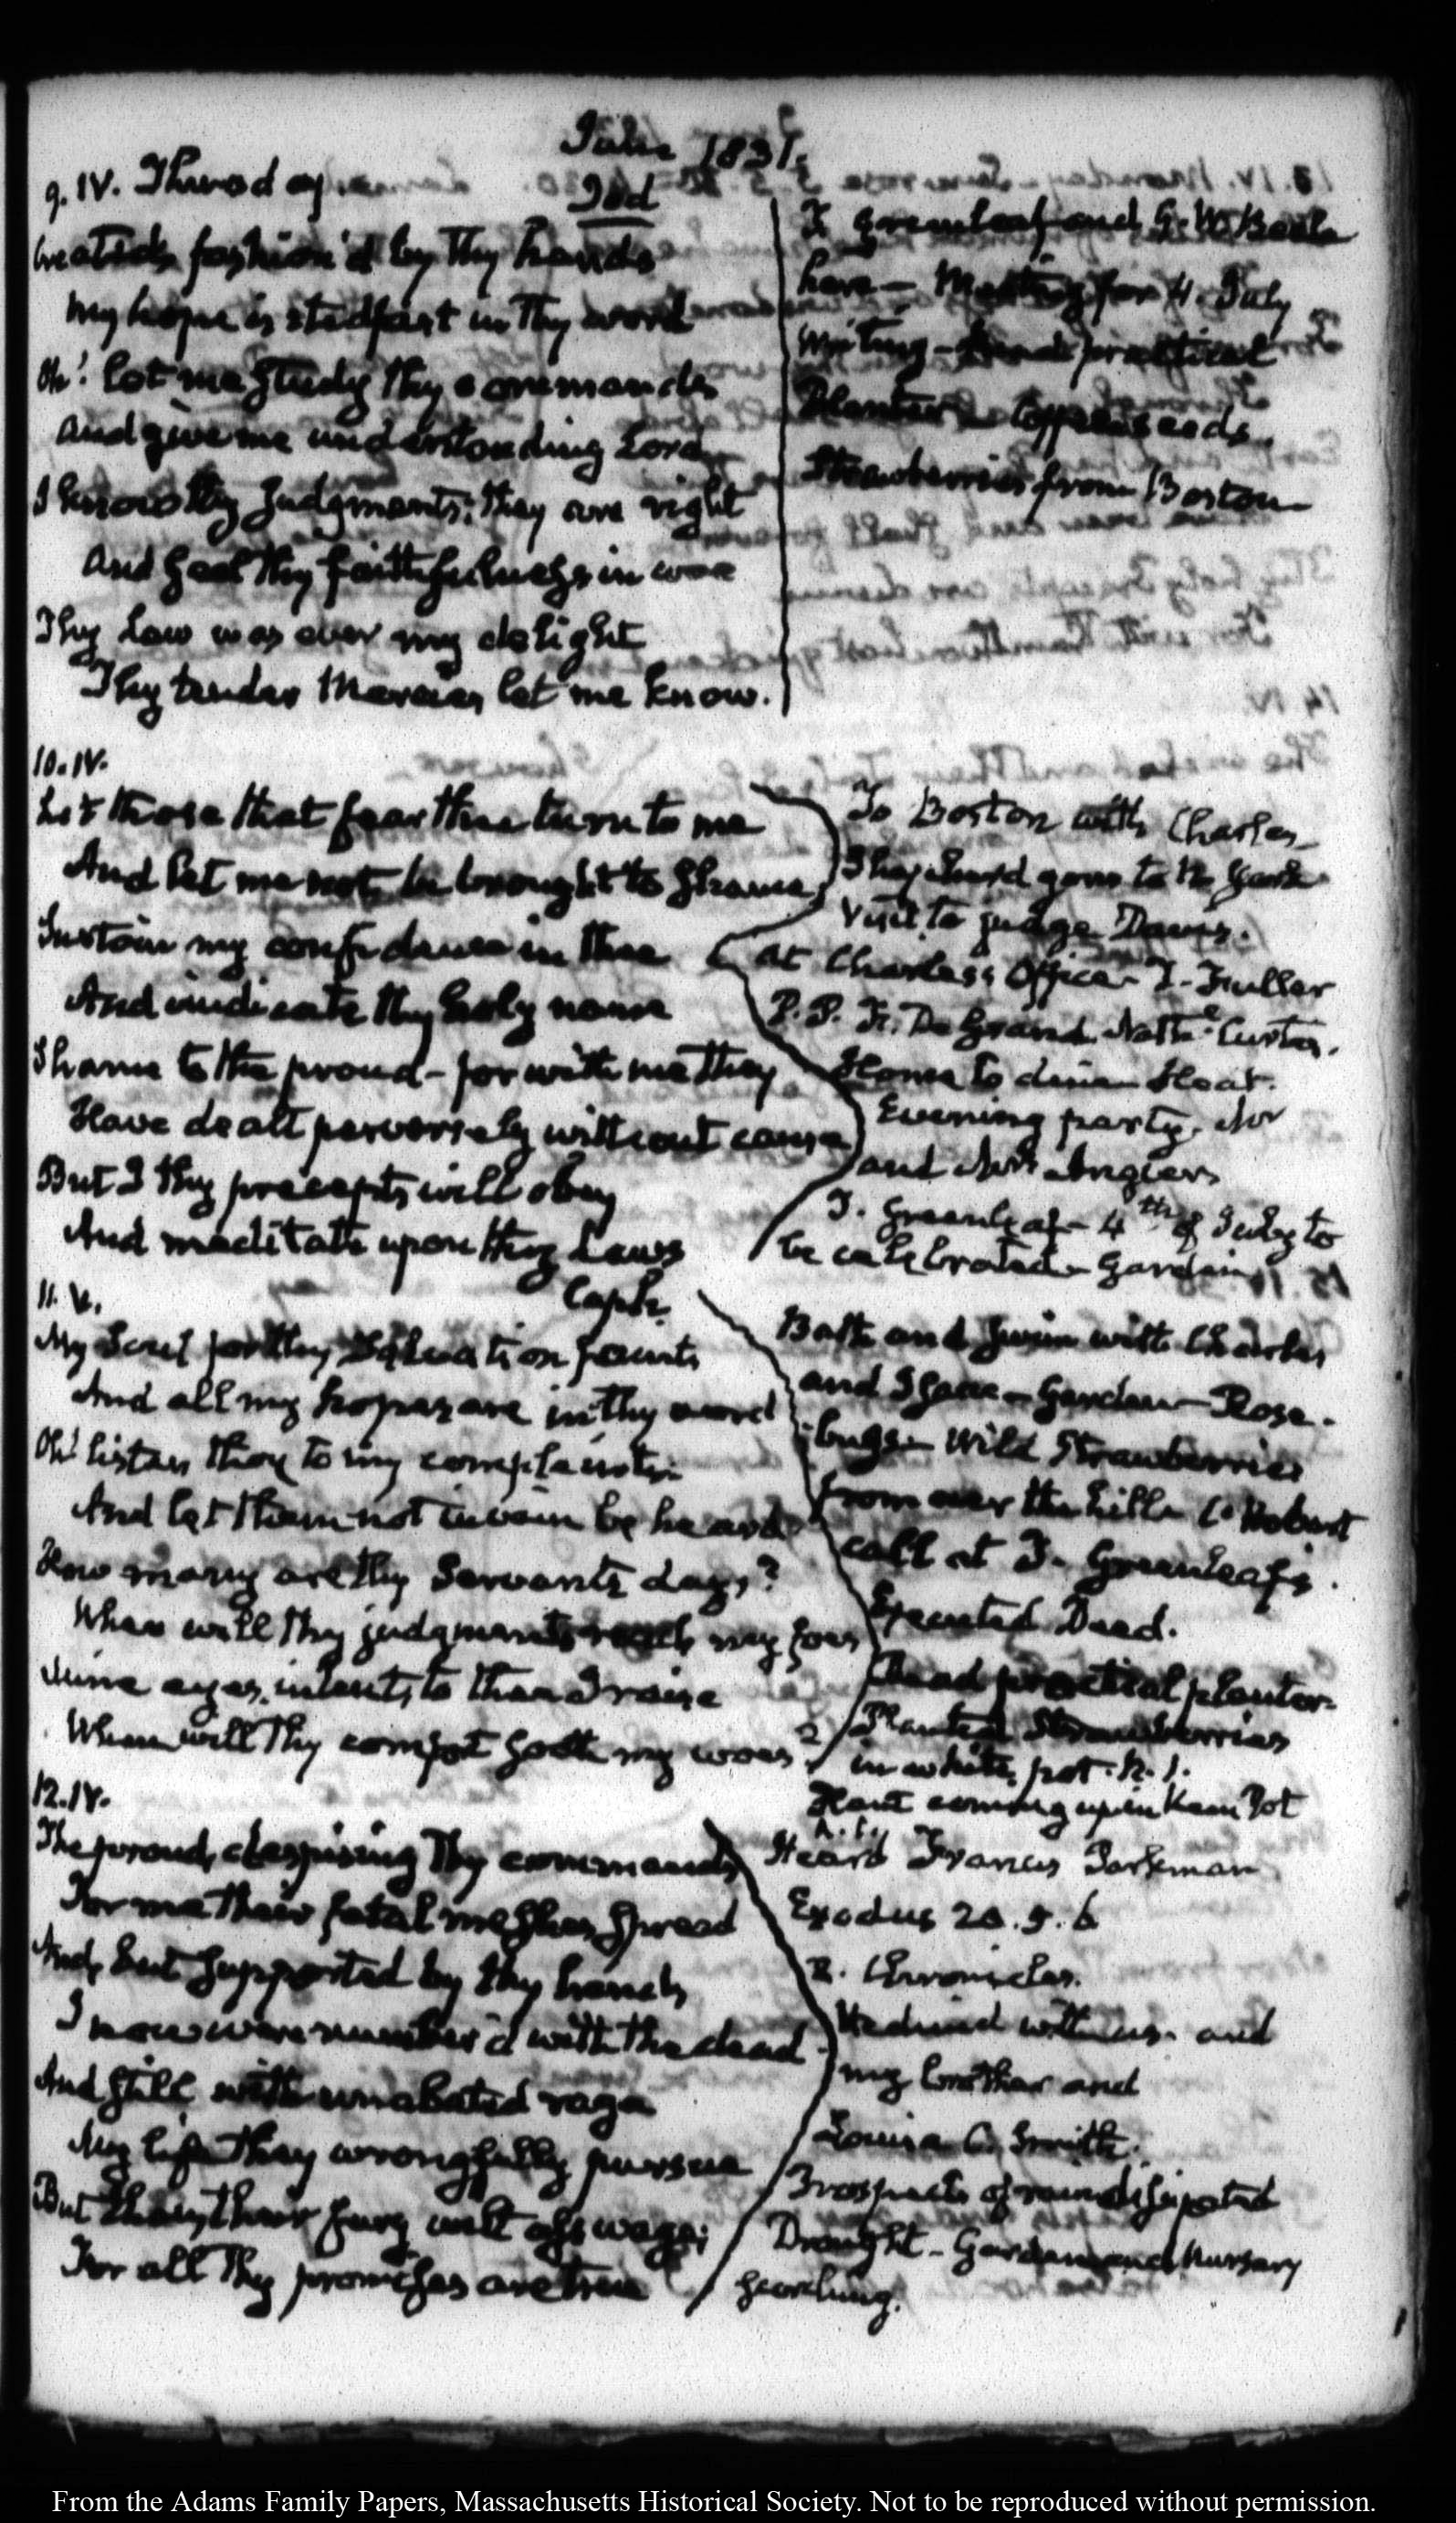 June 1831.
9. IV. Thursday.
Jod
Created, fashion'd by Thy hands
My hope is stedfast in Thy word
Oh! let me study thy commands
And give me understanding Lord
I know thy Judgments; they are right
And feel thy faithfulness in woe
Thy Law was ever my delight
Thy tender Mercies let me know.
T Greenleaf and G. W. Beale
here — Meeting for 4. July
Writing — practical
Planter seeds
Strawberries from Boston
10. IV.
Let those that fear thee turn to me
And let me not be brought to shame
Sustain my confidence in thee
And vindicate thy holy name
Shame to the proud — for with me they
Have dealt perversely without cause
But I thy precepts will obey
And meditate upon thy Laws
To Boston with Charles
Shepherd gone to N. York
Visit to judge Davis.
At Charles's Office — T. Fuller
P. P. F. De Grand Nathl. Curtis.
Home to dine Heat.
Evening party. Mr
and Mrs Angier
T. Greenleaf — 4th of July to
be celebrated — Garden
11. V.
Caph
My Soul for thy Salvation faints
And all my hopes are in thy word
Oh! listen thou to my complaints
And let them not in vain be heard
How many are thy Servant's days?
When will thy judgments reach my foes
Mine eyes, intent, to thee I raise
When will Thy comfort sooth my woes?
Bath and swim with Charles
and Isaac — Garden — Rose-
bugs — Wild Strawberries
from over the hill — C. Hobart
call at T. Greenleaf's.
Executed Deed.
Read practical planter
Planted Strawberries
in white pot. N. 1.
Plant coming up in Pot
N. 1.
12. IV.
The proud, despising Thy commands
For me their fatal meshes spread
And, but supported by thy hands
I now were number'd with the dead
And still with unabated rage
My life they wrongfully pursue
But thou, their fury wilt asswage;
For all Thy promises are true
Heard Francis Parkman
Exodus 20. 5. 6
2. Chronicles.
He dined with us. and
my brother and
Louisa C. Smith.
Prospects of rain dissipated
Drought — Garden and Nursery
scorching.
From the Adams Family Papers, Massachusetts Historical Society. Not to be reproduced without permission.